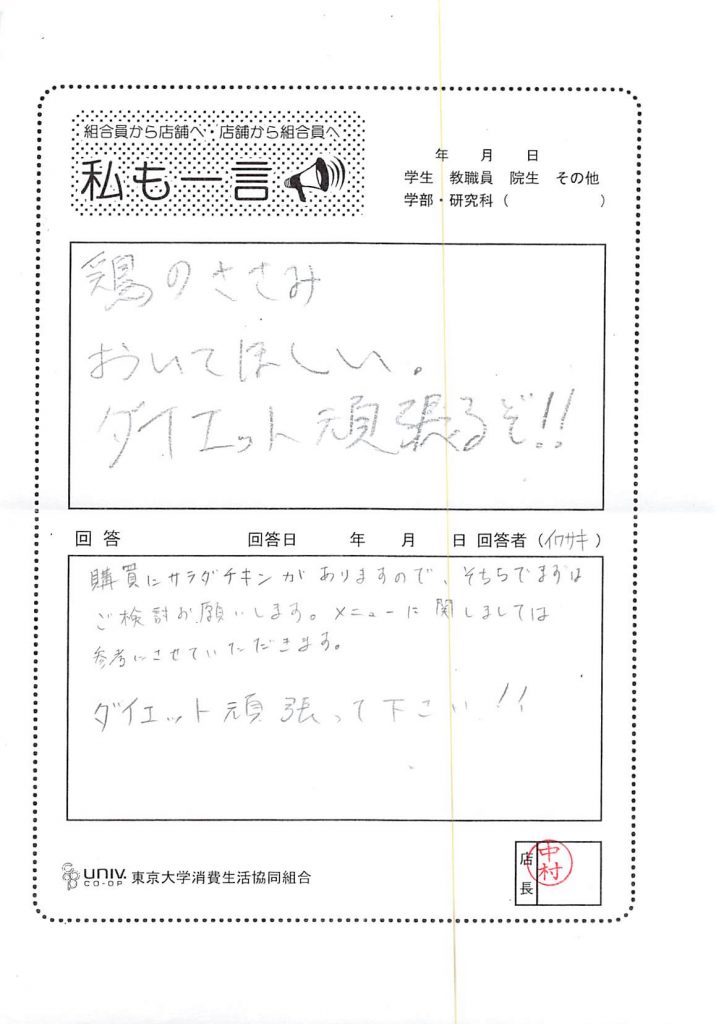 組合員から店舗へ・店舗から組合員へ
私も一言
年 月 日
学生 教職員 院生 その他
学部・研究科( )
鶏のささみ
おいてほしい。
ダイエット頑張るぞ!!
回答 回答日 年 月 日 回答者(イワサキ)
購買にサラダチキンがありますので、そちらでまずは
ご検討お願いします。メニューに関しましては
参考にさせていただきます。
ダイエット頑張って下さい!!
UNIV.
CO-OP
東京大学消費生活協同組合
店長
中村